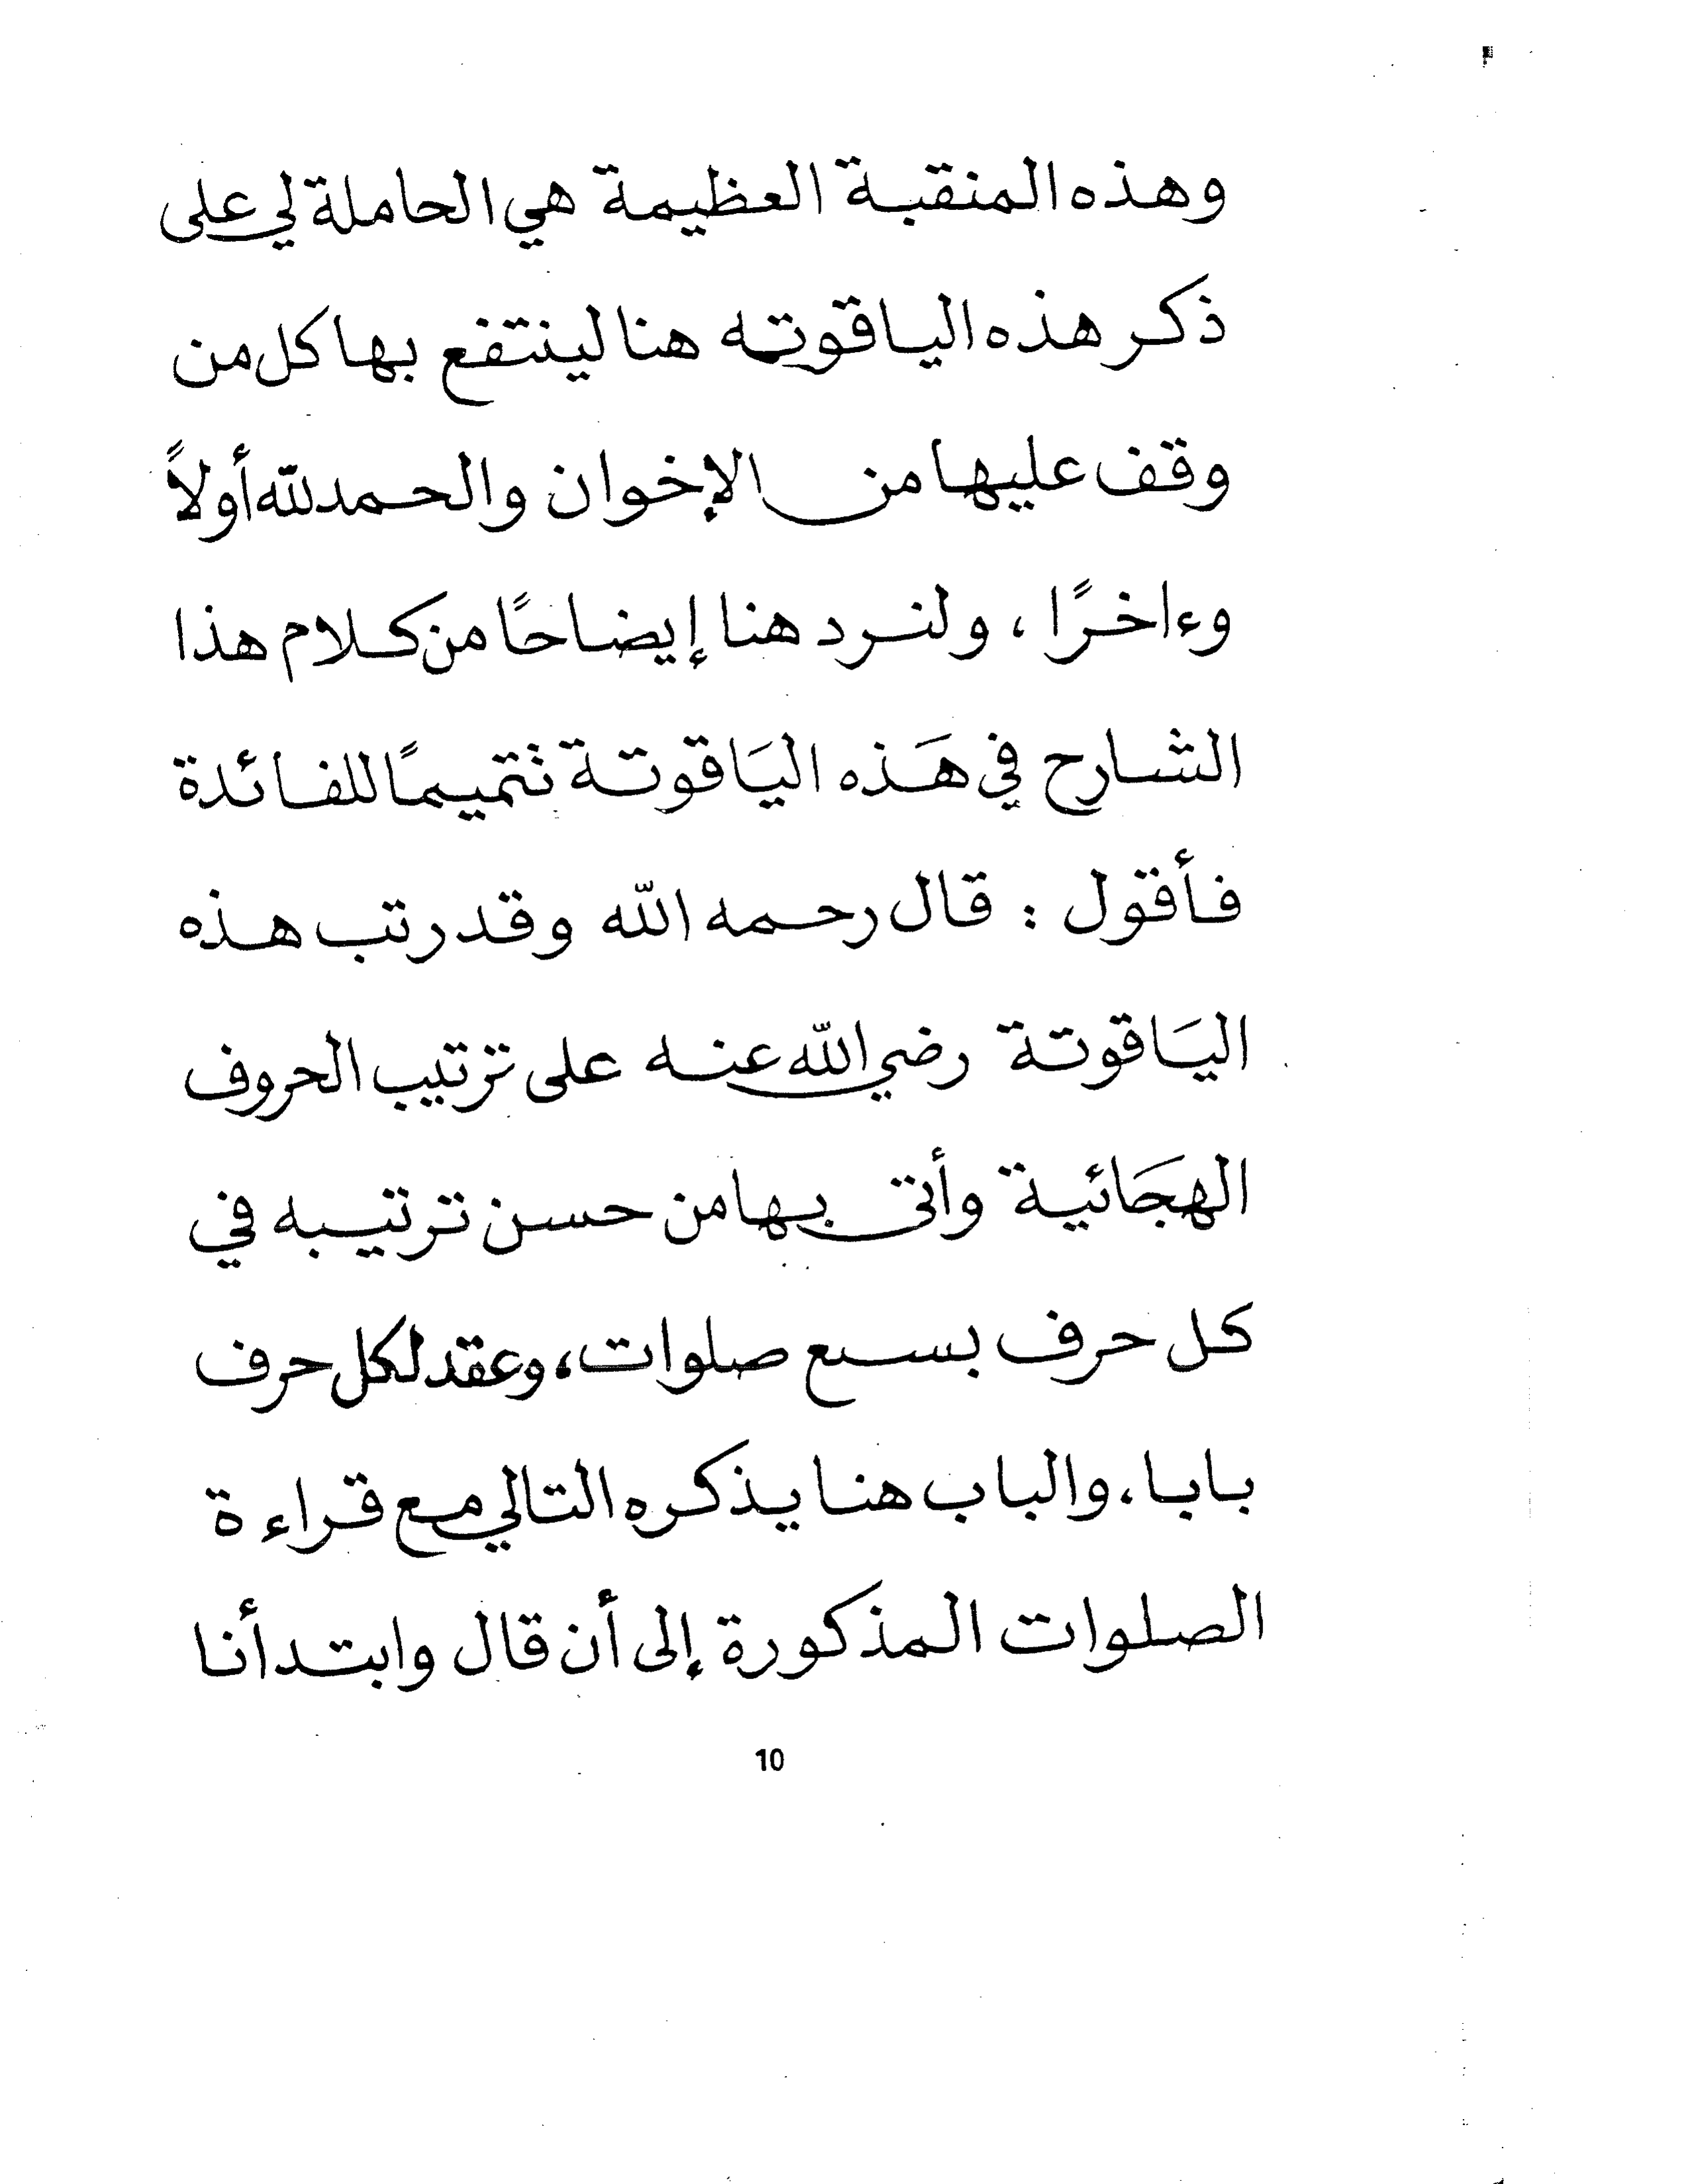 وهذه المنقبة العظيمة هي الحاملة لي على
ذكر هذه الياقوته هنا لينتفع بها كل من
وقف عليها من الإخوان والحمد لله أولاً
وءاخرًا ، ولنرد هنا إيضاحًا من كلام هذا
الشارح في هَذه اليَاقوتة تتميمًا للفائدة
فأقول : قال رحمه الله وقد رتب هذه
اليَاقوتة رضي الله عنه على ترتيب الحروف
الهجَائية وأتى بها من حسن ترتيبه في
كل حرف بسبع صلوات، وعقد لكل حرف
بابا، والباب هنا يذكره التالي مع قراءة
الصلوات المذكورة إلى أن قال وابتدأنا
10